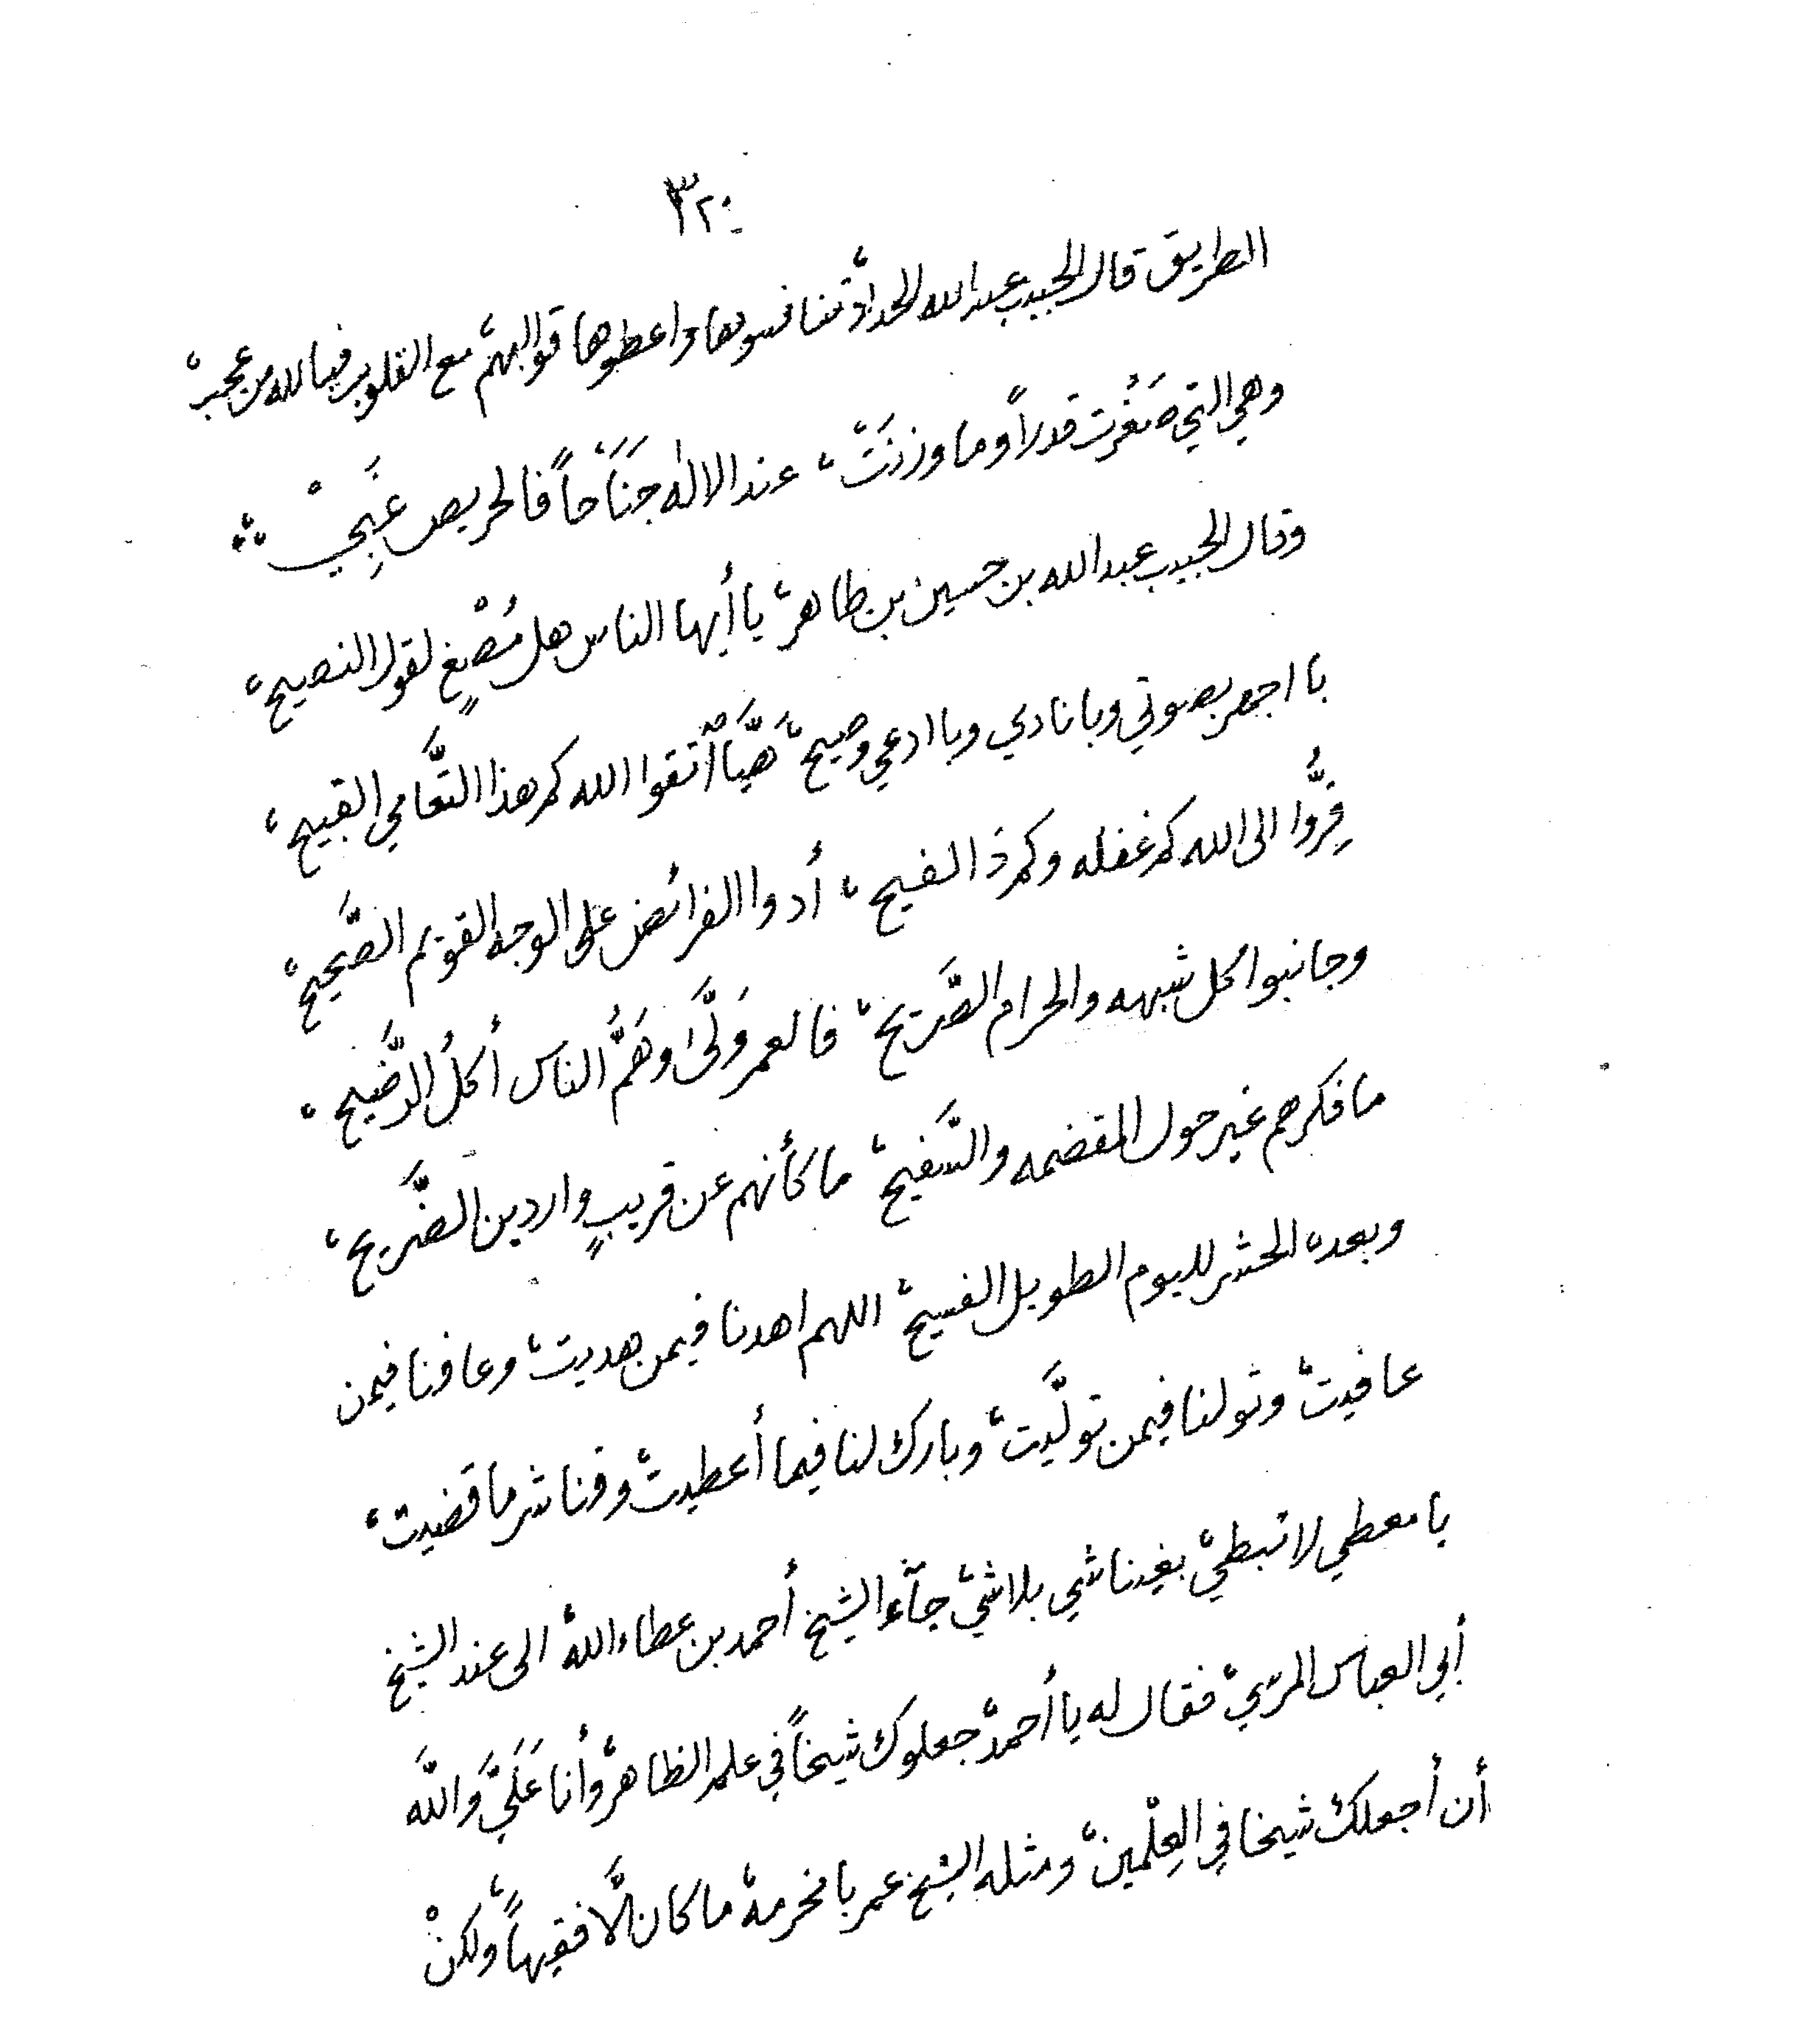 ٣٢٠
الطريق قال الحبيب عبدالله الحداد، تنافسوها واعطوها قوالبهم، مع القلوب فيالله من عجب،
وهي التي صَغُرت قدراً وما وزنَتْ، عند الالٰه جَنَاَحاً فالحريص غَبِيْ،
وقال الحبيب عبدالله بن حسين بن طاهر، يا أيها الناس هل مُصْغٍ لقول النصيح،
با اجهر بصوتي وبا نادي وبا ادعي وصيح، هَيَّا اتقوا الله كم هذا التَّعَامي القبيح،
فِرُّوا الى الله كم غفله وكم ذا الفيح، أدوا الفرائض على الوجه القويم الصَّحيح،
وجانبوا كل شبهه والحرام الصَّريح، فالعمر وَلَّىٰ وهَمُّ الناس أكلُ الرَّضيح،
ما فكرهم غير حول المقضمه والسَّفيح، ما كأنهم عن قريبٍ واردين الضَّريح،
وبعده الحشر لليوم الطويل الفسيح، اللهم اهدنا فيمن هديت، وعافنا فيمن
عافيت، وتولنا فيمن تولَّيت، وبارك لنا فيما أعطيت، وقنا شر ما قضيت،
يا معطي لا تبطي، بغينا شي بلا شي، جآء الشيخ أحمد بن عطاء الله، الى عند الشيخ
أبي العباس المرسي، فقال له يا أحمد، جعلوك شيخاً في علم الظاهر، وأنا عَلَيَّ وَاللَّه
أن أجعلك شيخا في العِلْمين، ومثله الشيخ عمر بامخرمه، ما كان إلَّا فقيهاً، ولكنْ